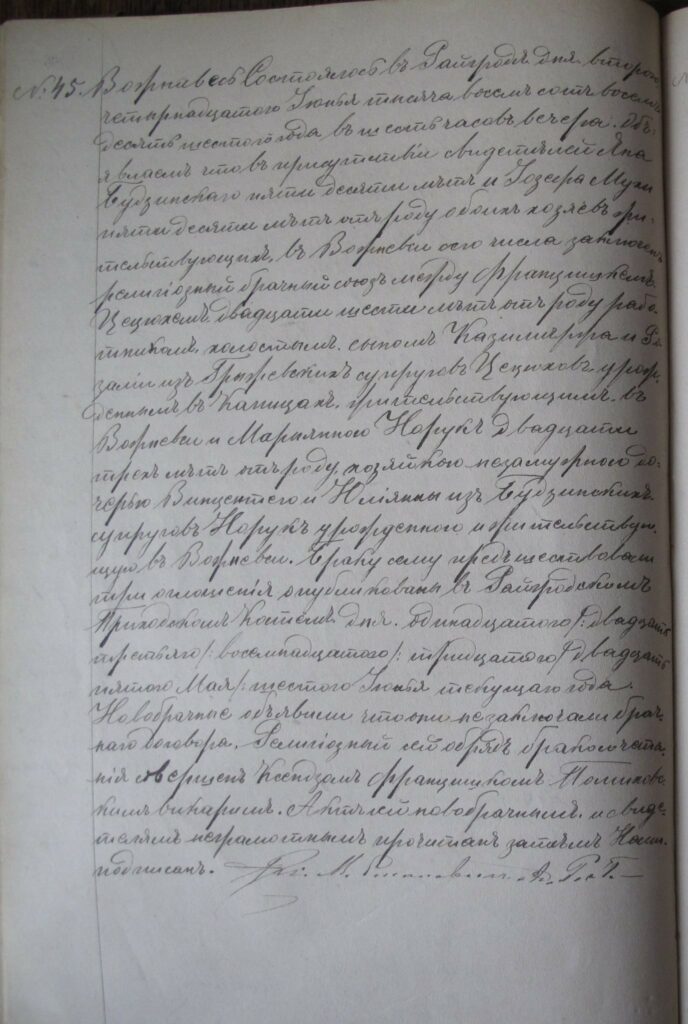 № 45. Вожнавесь Состоялось въ Райгродѣ дня второго
четырнадцатого Іюнья тысяча восемъ сотъ восемь
десятъ шестого года въ шесть часовъ вечера. Объ-
являемъ что въ присутствіи свидѣтелей Яна
Будзинскаго пяти десяти лѣтъ и Іозефа Мухи
пяти десяти лѣтъ отъ роду обоихъ хозяевъ жи-
тельствующихъ въ Вожневси сего числа заключенъ
религіозный брачный союзъ между Францишкемъ
Цецюхемъ двадцати шести лѣтъ отъ роду рабо-
тникамъ холостымъ сыномъ Казимержа и Ро
заліи изъ супруговъ Цецюховъ урож-
деннымъ въ Капицахъ жительствующимъ въ
Вожневси и Марыянною Норукъ двадцати
трехъ лѣтъ отъ роду хозяйкою незамужною до-
черью Винцентего и Юліянны изъ Будзинскихъ
супруговъ Норукъ урожденного и жительствую-
щую въ Вожневси. Браку сему предшествовали
три оглошенія опубликованы въ Райгродскомъ
Приходскомъ Костелѣ дня одинадцатого /: двадцать
третьяго /: восемнадцатого /: тридцатого / двадцать
пятого Мая /: шестого Іюнья текущаго года
Новобрачные объявили что они незаключали брач-
наго договора. Религіозный сей обрядъ бракосчета-
нія совершенъ Ксендзомъ Францишкомъ
викаримъ. Актъ сей новобрачнымъ и свидѣ-
телямъ неграмотнымъ прочитанъ затѣмъ Нами
подписанъ.